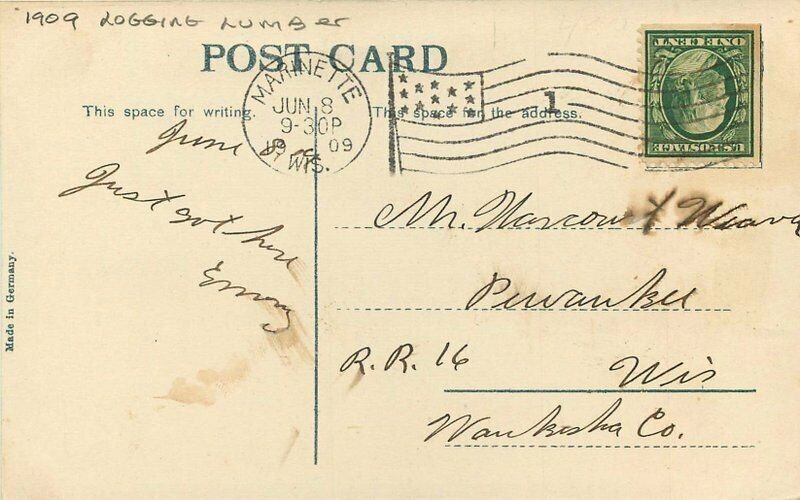 1909 LOGGING LUMBER
POST CARD
MARINETTE
JUN 8
9-30P
1909
WIS.
1
ONE CENT
U.S. POSTAGE
This space for writing.
This space for the address.
June
Just got here
Emory
Made in Germany.
Mr. Harcourt Weaver
Pewaukee
R.R. 16
Wis
Waukesha Co.